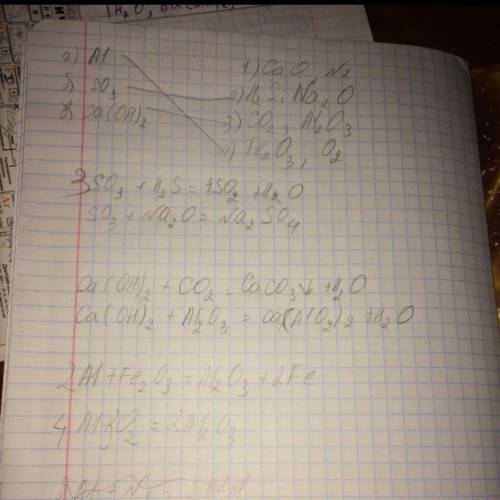 а) Al
б) SO3
в) Ca(OH)2
1) CaO, N2
2) H2S, Na2O
3) CO2, Al2O3
4) Fe2O3, O2
3SO3 + H2S = 4SO2 + H2O
SO3 + Na2O = Na2SO4
Ca(OH)2 + CO2 = CaCO3↓ + H2O
Ca(OH)2 + Al2O3 = Ca(AlO2)2 + H2O
2Al + Fe2O3 = Al2O3 + 2Fe
4Al 3O2 = 2Al2O3